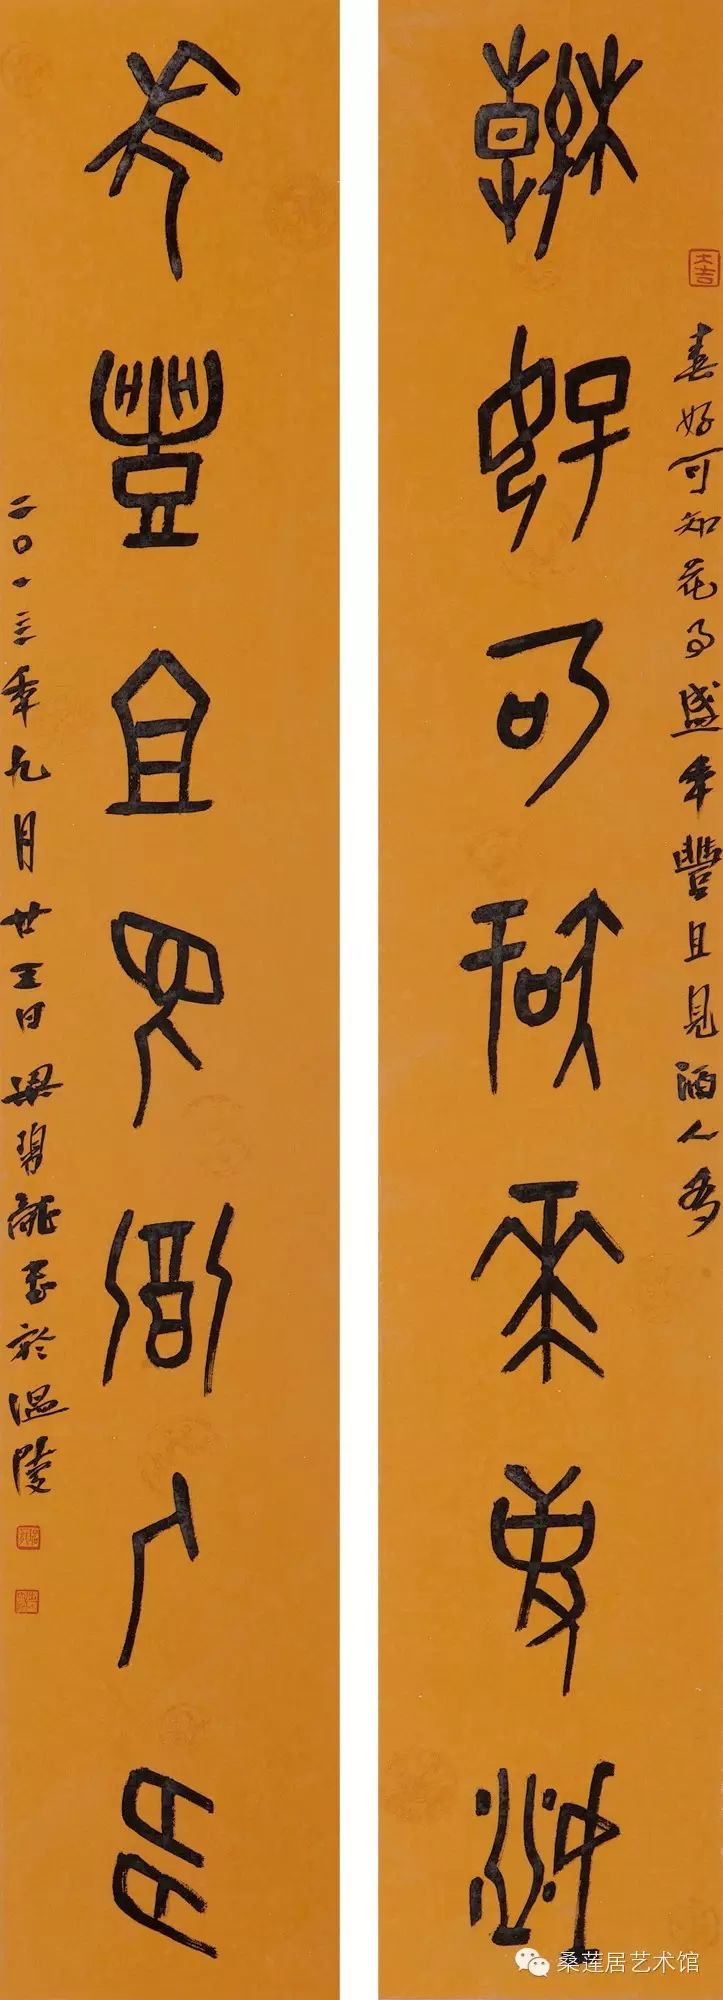 大吉
春好可知花事盛年豐且見酒人多
春好可知花事盛
年豐且見酒人多
二〇一三年九月廿五日梁碧龍書於溫陵
桑莲居艺术馆